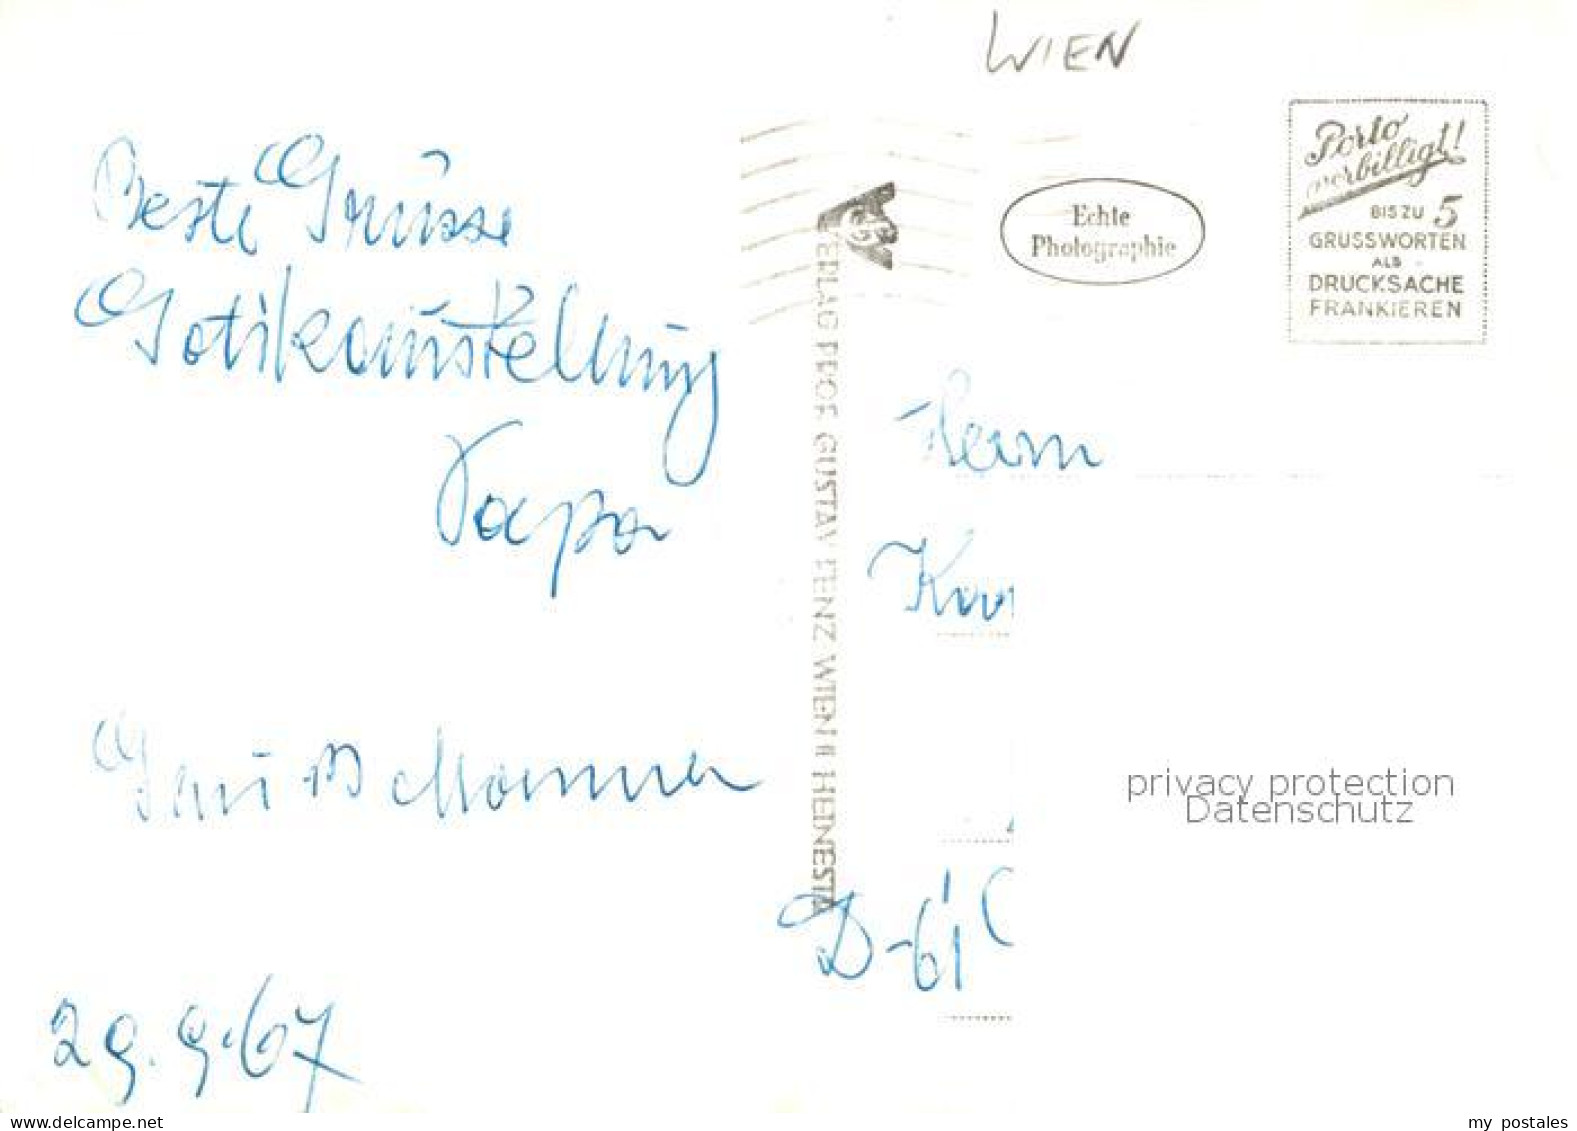 WIEN
Beste Grüsse
Gotikausstellung
Papa
29.9.67
VERLAG PROF. GUSTAV FENZ WIEN II HEINESTR
Echte
Photographie
Porto
verbilligt!
BIS ZU 5
GRUSSWORTEN
ALS
DRUCKSACHE
FRANKIEREN
Herrn
D-61
privacy protection
Datenschutz
my postales